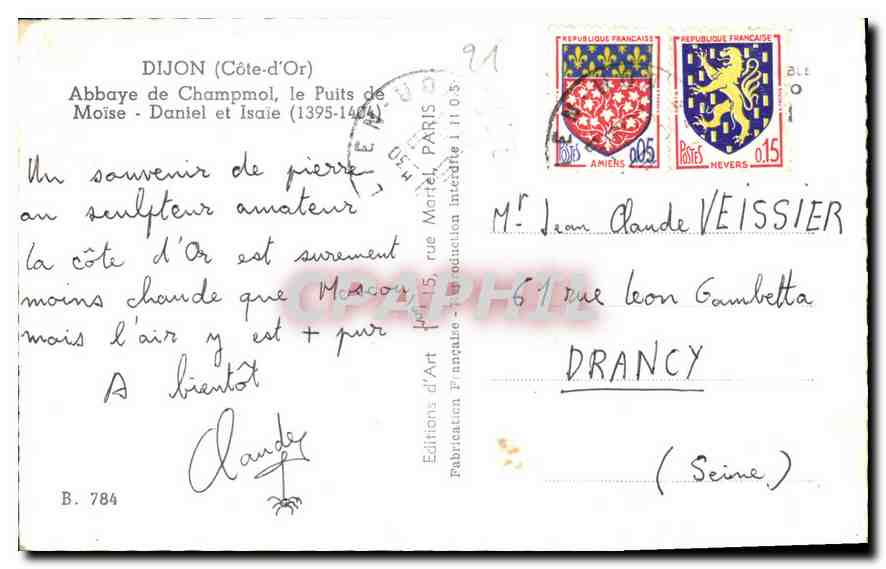 DIJON (Côte-d'Or)
Abbaye de Champmol, le Puits de
Moïse - Daniel et Isaïe (1395-1404)
Un souvenir de pierre
au sculpteur amateur
la côte d'Or est surement
moins chaude que Moscou,
mais l'air y est + pur
A bientôt
Claude
B. 784
Editions d'Art 15, rue Martel, PARIS
Fabrication Française - Reproduction Interdite
21
REPUBLIQUE FRANÇAISE
POSTES 0,05
AMIENS
REPUBLIQUE FRANÇAISE
POSTES 0,15
NEVERS
Mr Jean Claude VEISSIER
61 rue Leon Gambetta
DRANCY
(Seine)
CPAPHIL